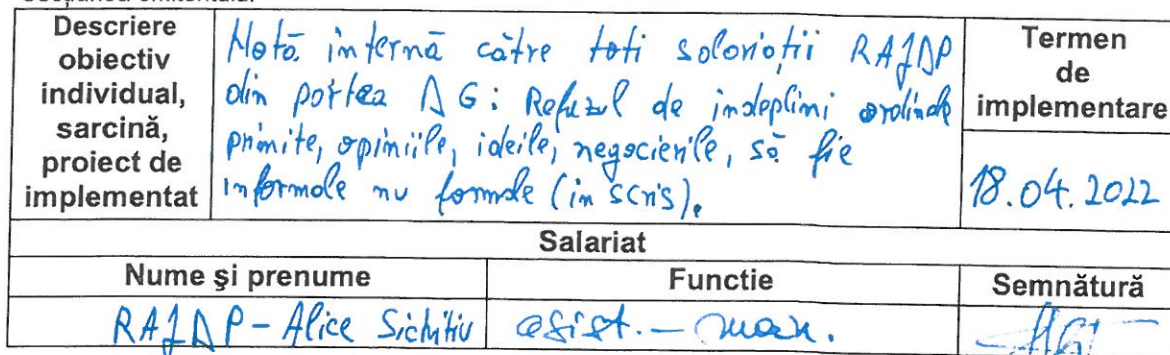 Descriere
obiectiv
individual,
sarcină,
proiect de
implementat
Notă internă către toti salariații RAJDP
din partea DG: Refuzul de indeplini ordinele
primite, opiniile, ideile, negocierile, să fie
informale nu formale (in scris).
Termen
de
implementare
18.04.2022
Salariat
Nume şi prenume
Functie
Semnătură
RAJDP - Alice Sichitiu
asist. - man.